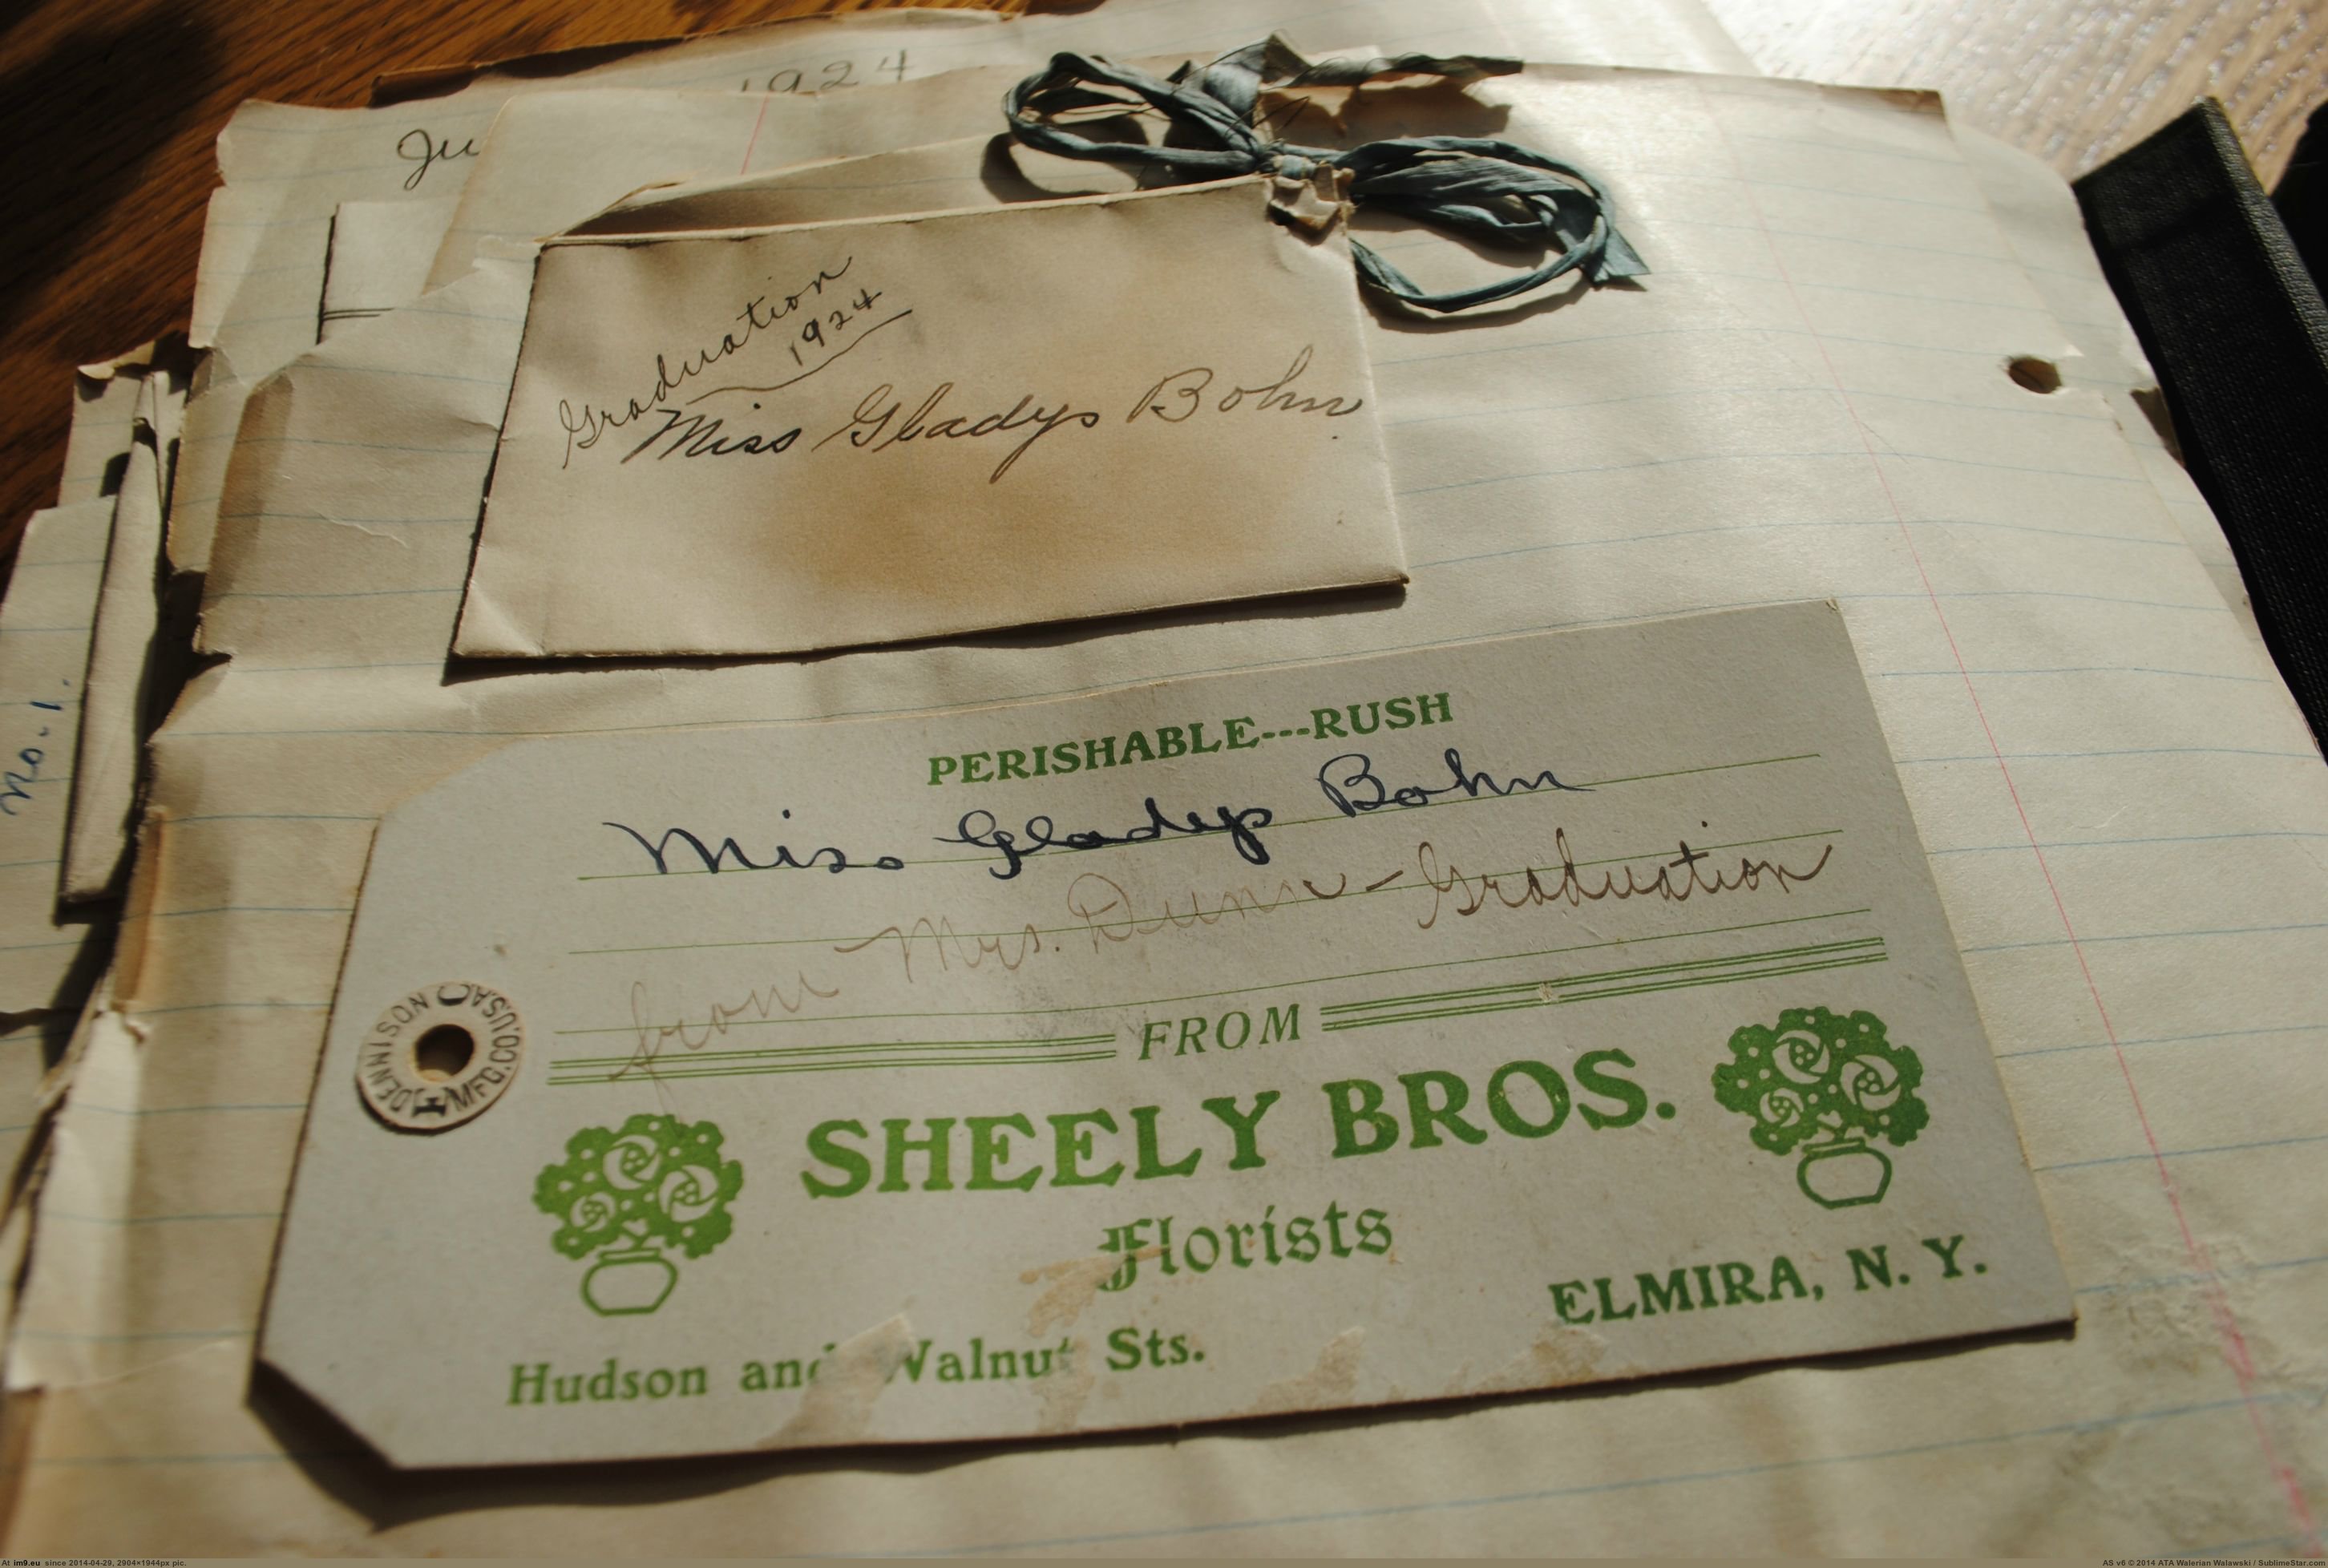 1924
Ju
Graduation
1924
Miss Gladys Bohn
No. 1.
PERISHABLE---RUSH
Miss Gladys Bohn
from Mrs. Dunn - Graduation
FROM
DENNISON MFG.CO.USA
SHEELY BROS.
Florists
Hudson and Walnut Sts.
ELMIRA, N. Y.
At im9.eu since 2014-04-29, 2904×1944px pic.
AS v6 © 2014 ATA Walerian Walawski / SublimeStar.com